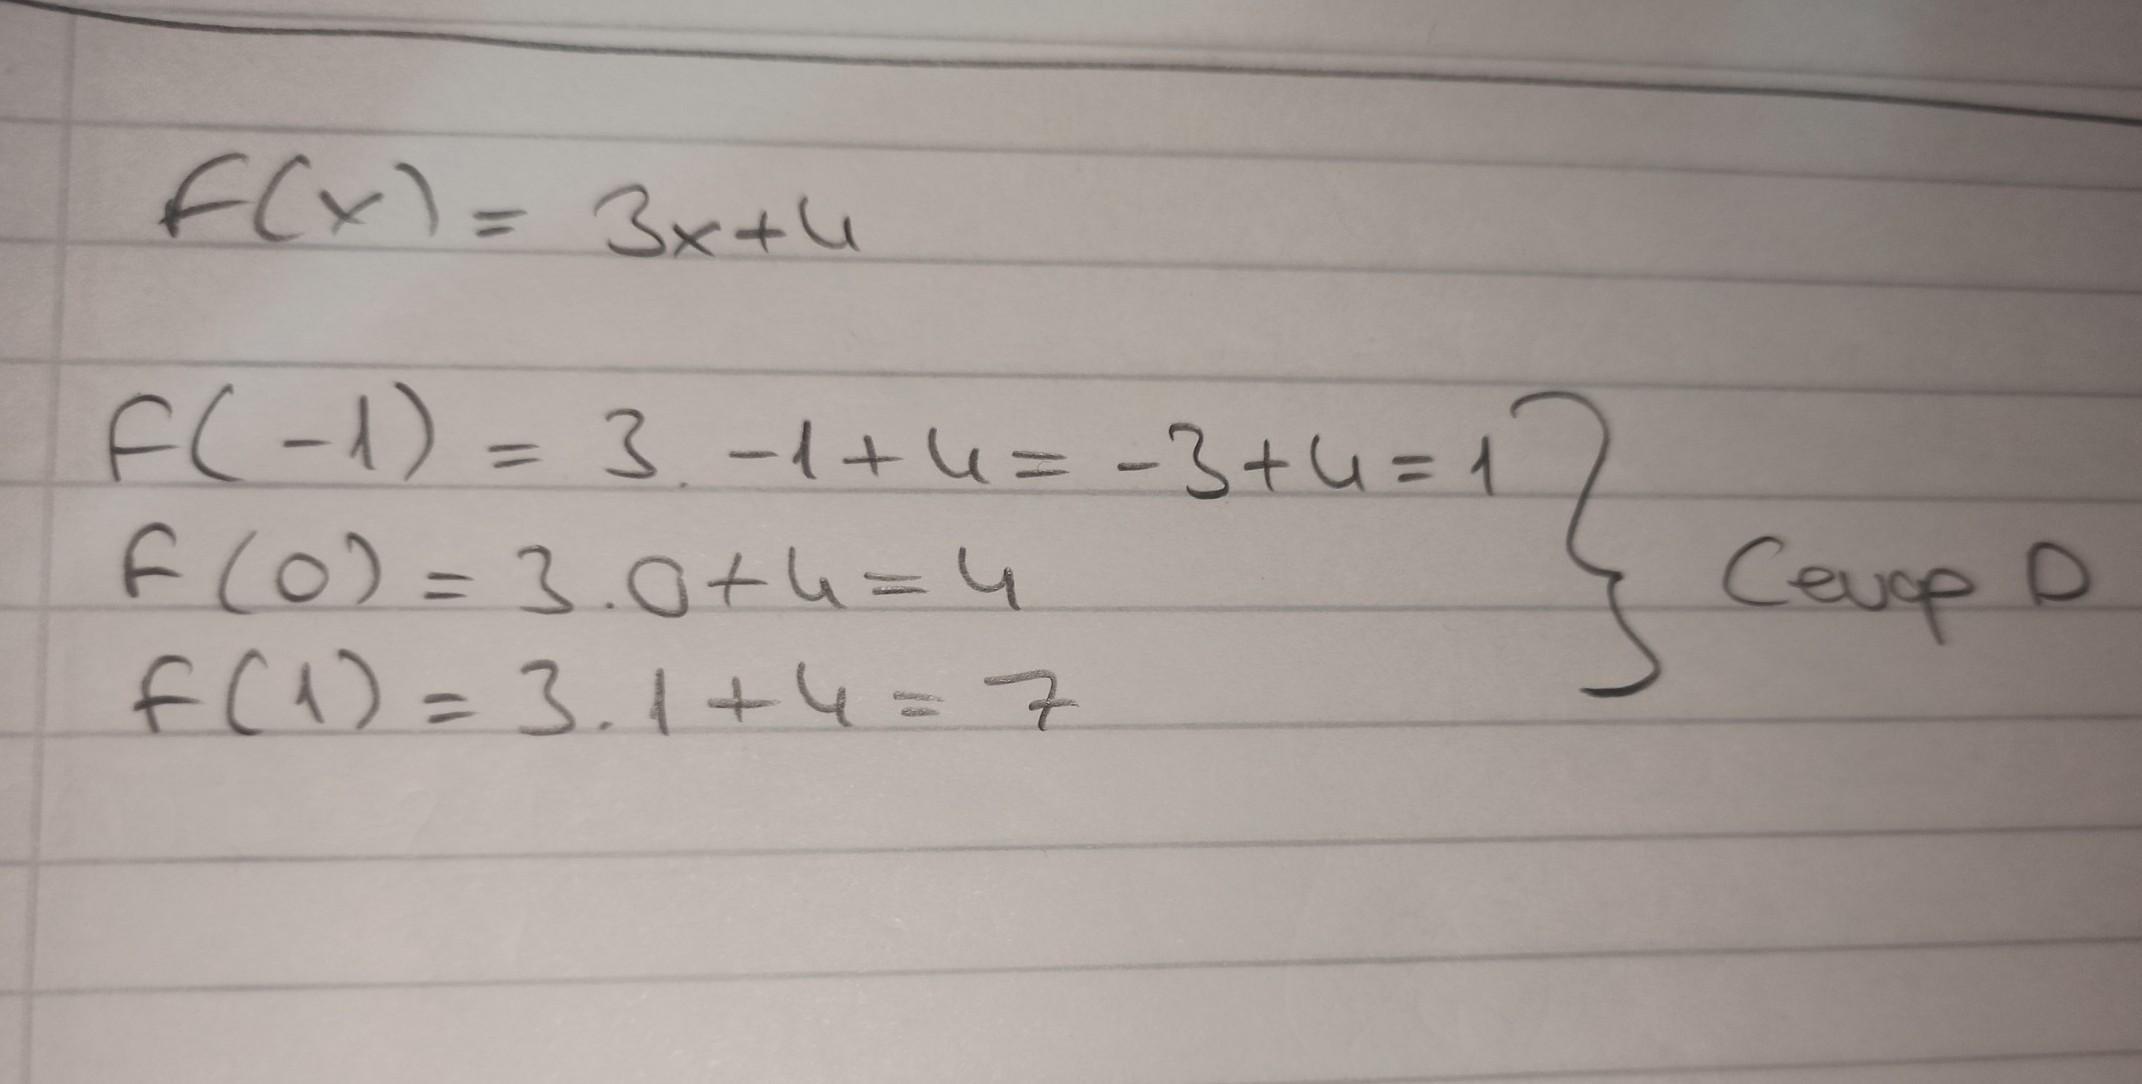 f(x) = 3x+4
f(-1) = 3. -1+4 = -3+4=1
f(0) = 3.0+4=4
f(1) = 3.1+4=7
} Cevap D